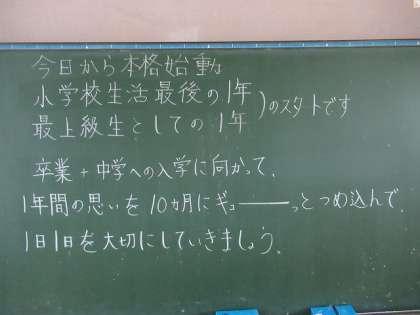 今日から本格始動
小学校生活最後の1年
最上級生としての1年
)のスタートです
卒業+中学への入学に向かって、
1年間の思いを10ヵ月にギュ――っとつめ込んで、
1日1日を大切にしていきましょう。